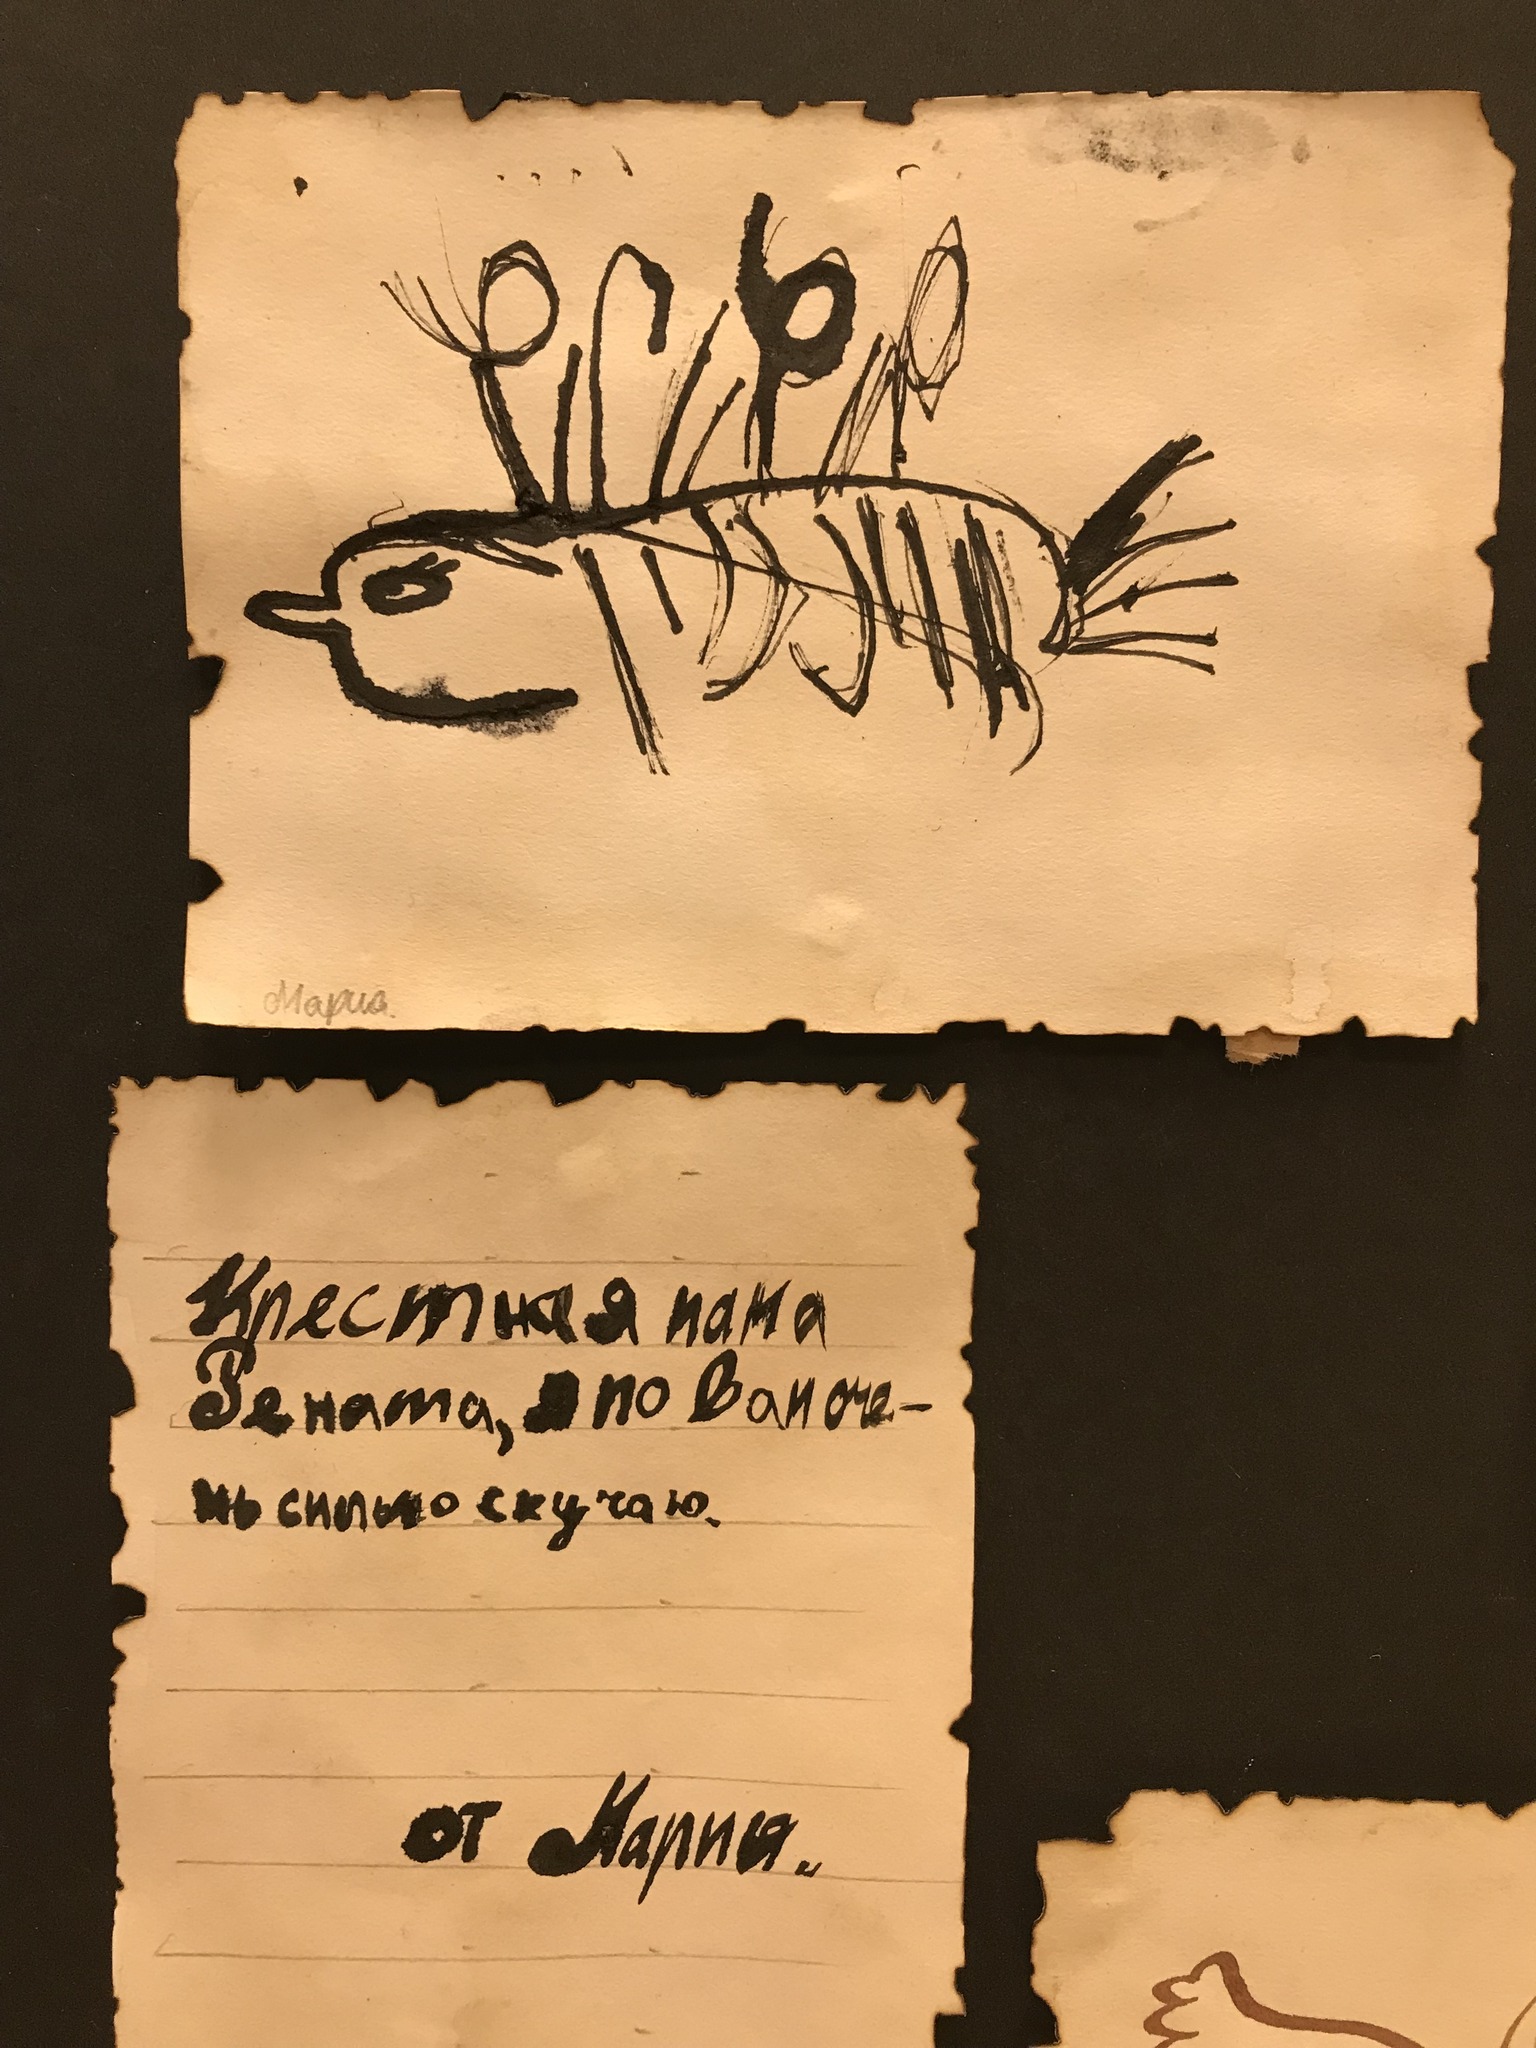 Мария.
Крестная мама
Рената, я по Вам оче-
нь сильно скучаю.
от Марии.